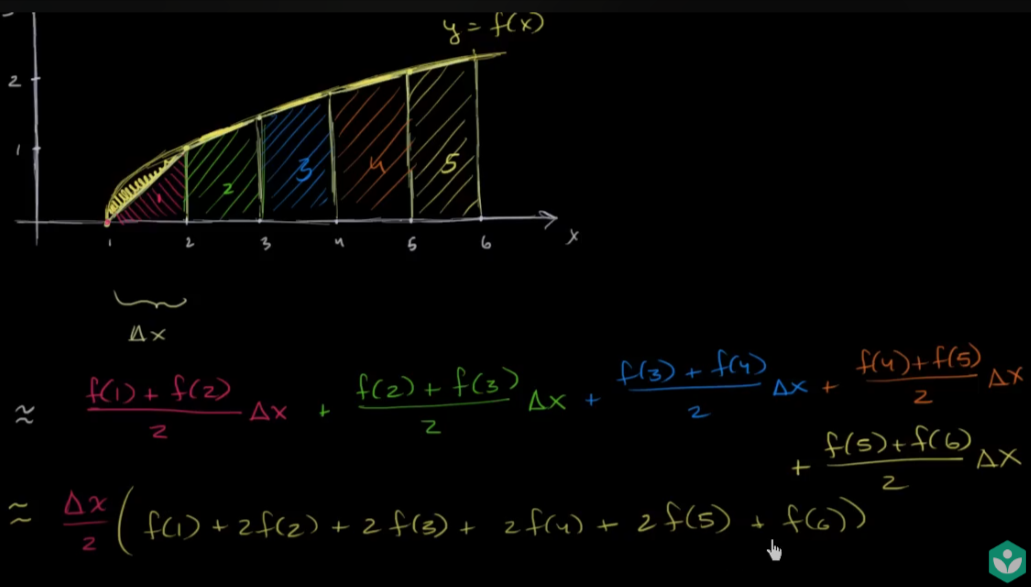 y = f(x)
2
1
1 2 3 4 5
1 2 3 4 5 6 x
Δx
≈ f(1) + f(2) / 2 Δx + f(2) + f(3) / 2 Δx + f(3) + f(4) / 2 Δx + f(4) + f(5) / 2 Δx
+ f(5) + f(6) / 2 Δx
≈ Δx / 2 ( f(1) + 2f(2) + 2f(3) + 2f(4) + 2f(5) + f(6))